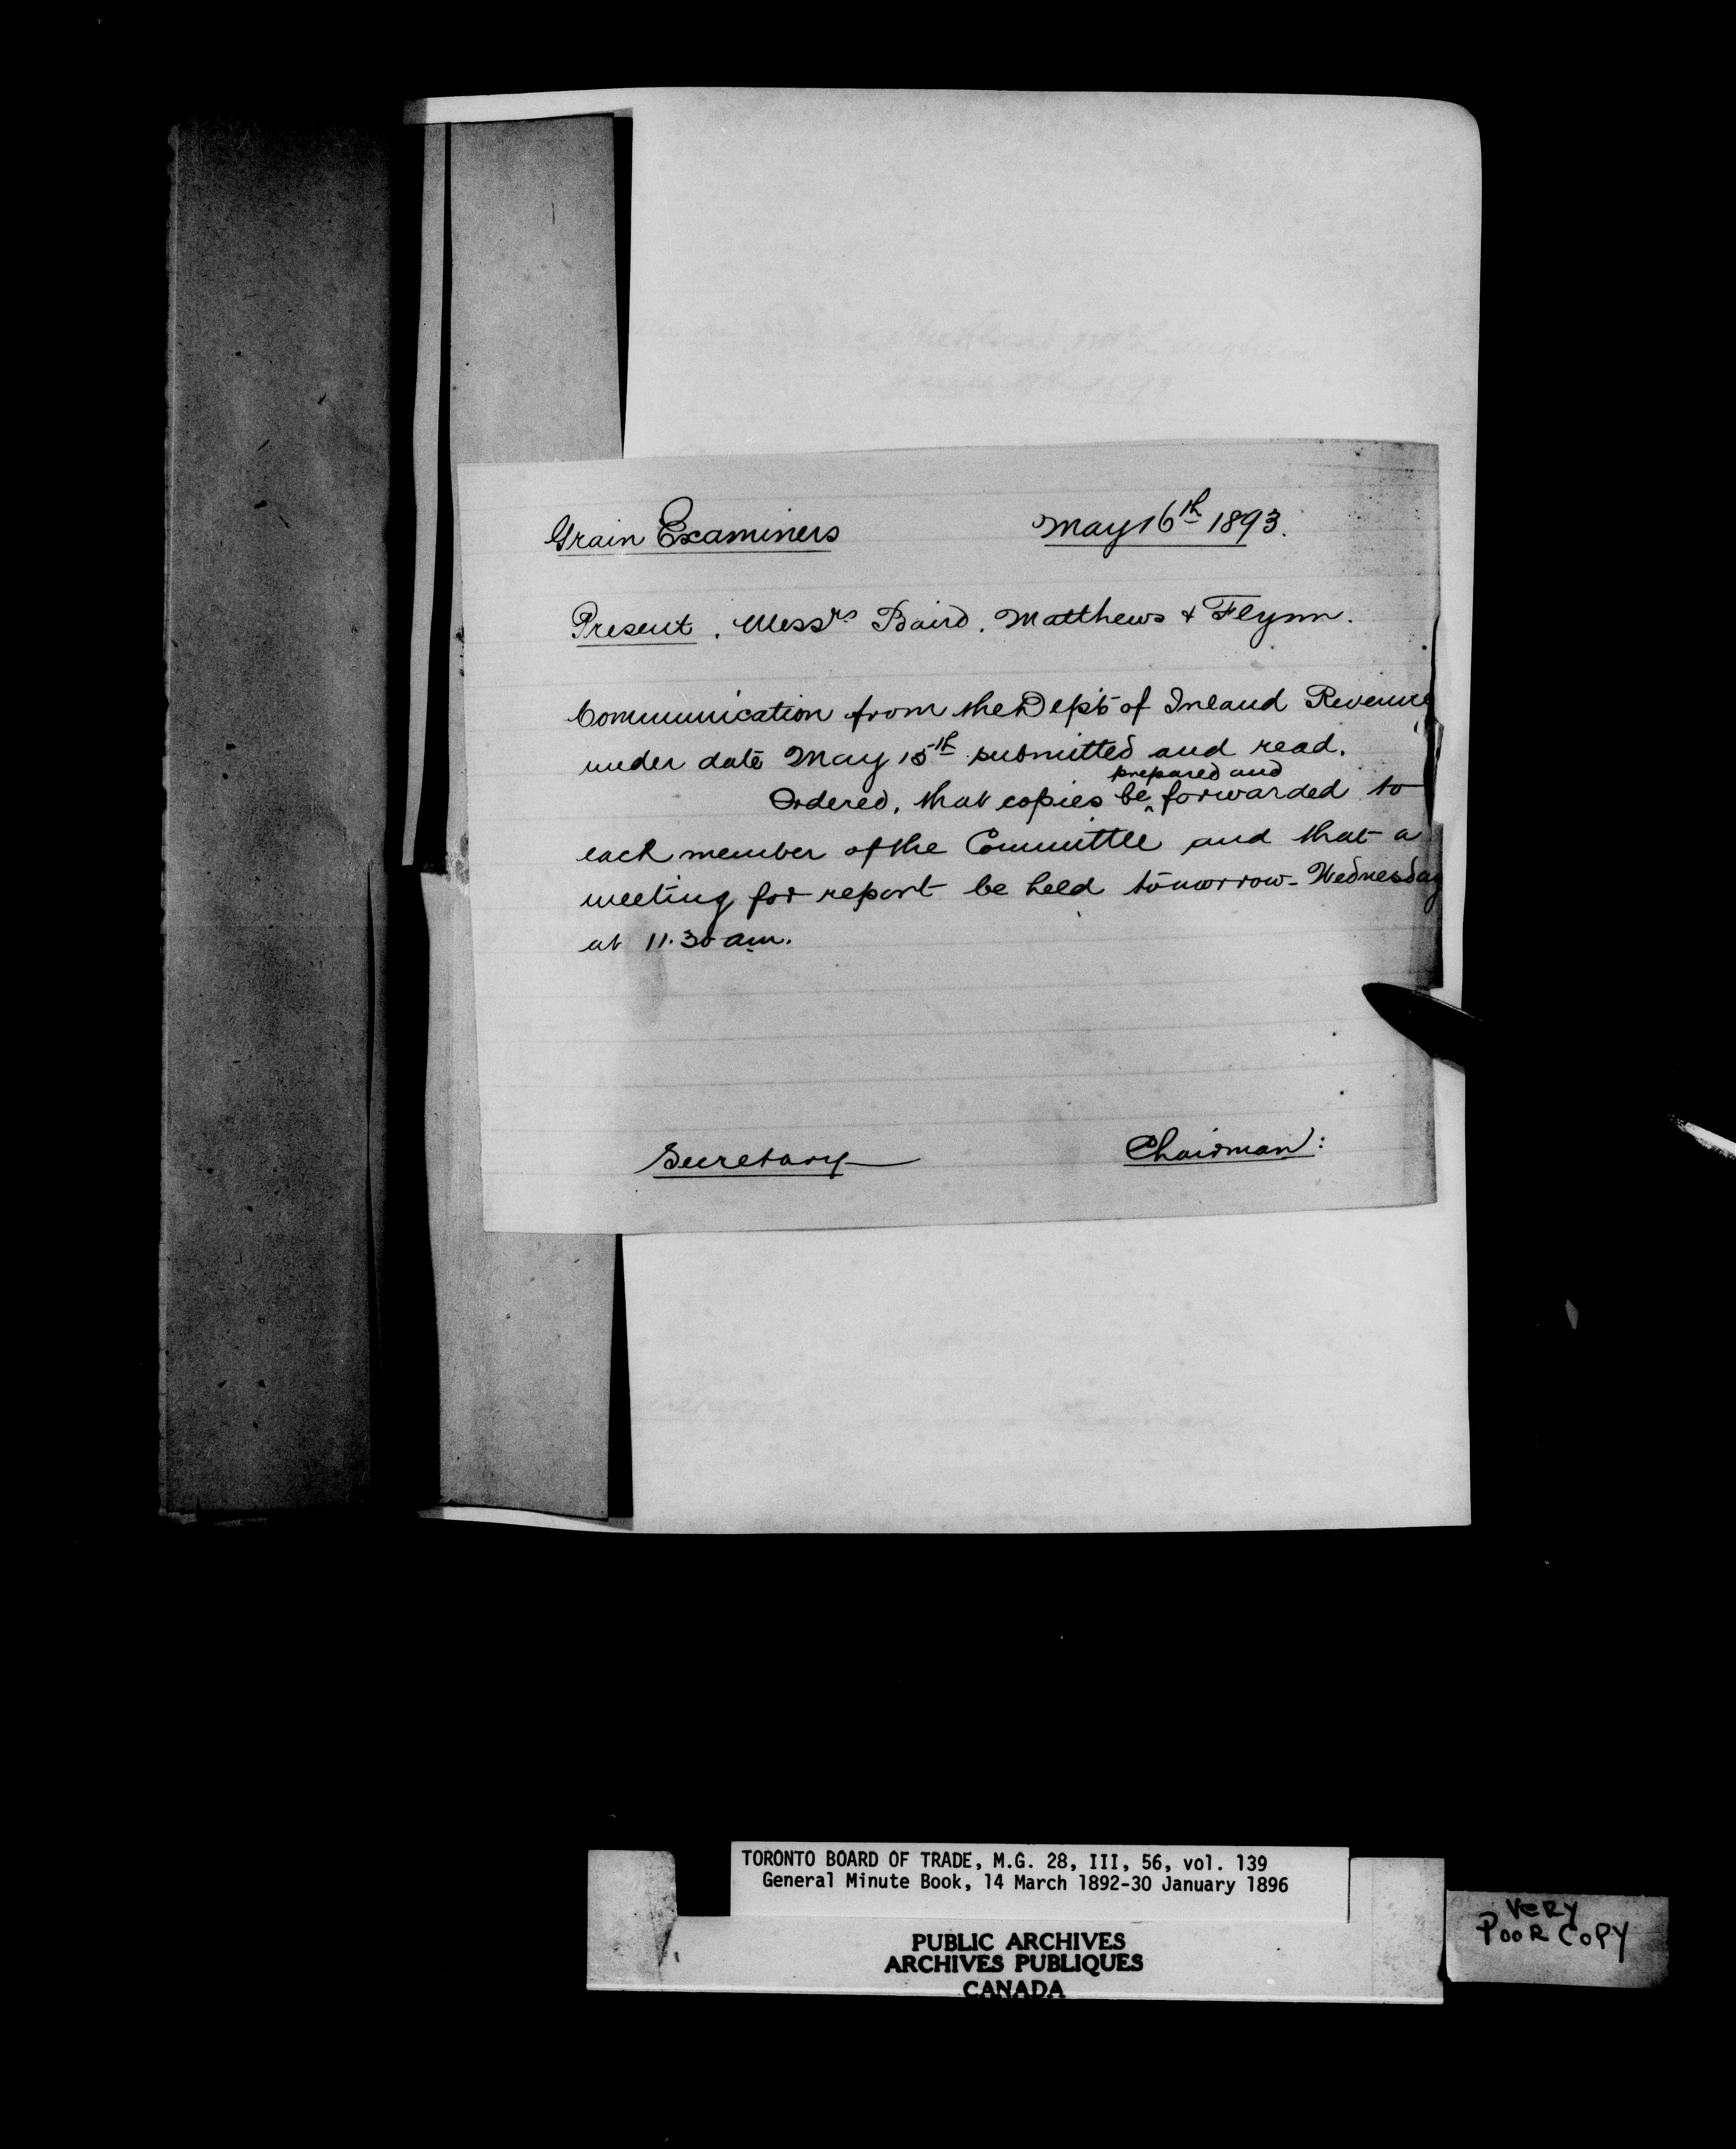 Grain Examiners May 16th 1893.
Present. Messrs Baird. Matthews & Flynn.
Communication from the Dept of Inland Revenue
under date May 15th submitted and read.
prepared and
Ordered, that copies be ^ forwarded to
each member of the Committee and that a
meeting for report be held tomorrow - Wednesday
at 11.30 am.
Secretary Chairman:
TORONTO BOARD OF TRADE, M.G. 28, III, 56, vol. 139
General Minute Book, 14 March 1892-30 January 1896
PUBLIC ARCHIVES
ARCHIVES PUBLIQUES
CANADA
VERY
POOR COPY